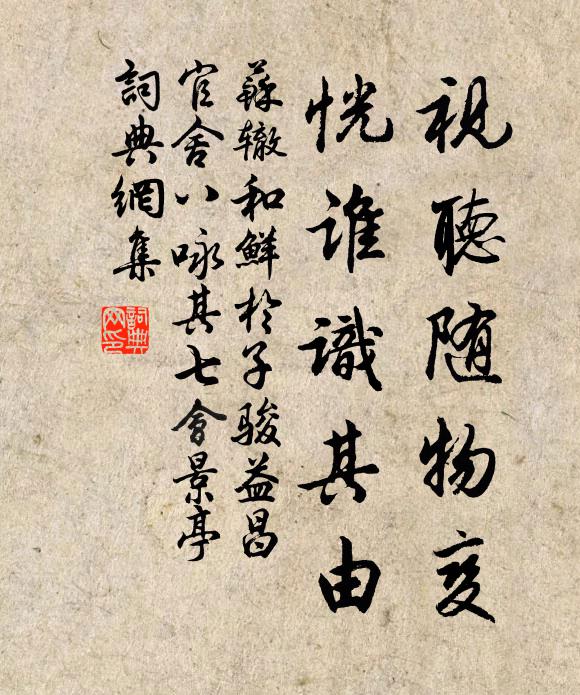 視聽随物变
恍谁識其由
蘇辙和鮮於子駿益昌
官舍八咏其七會景亭
詞典網集
詞典網印